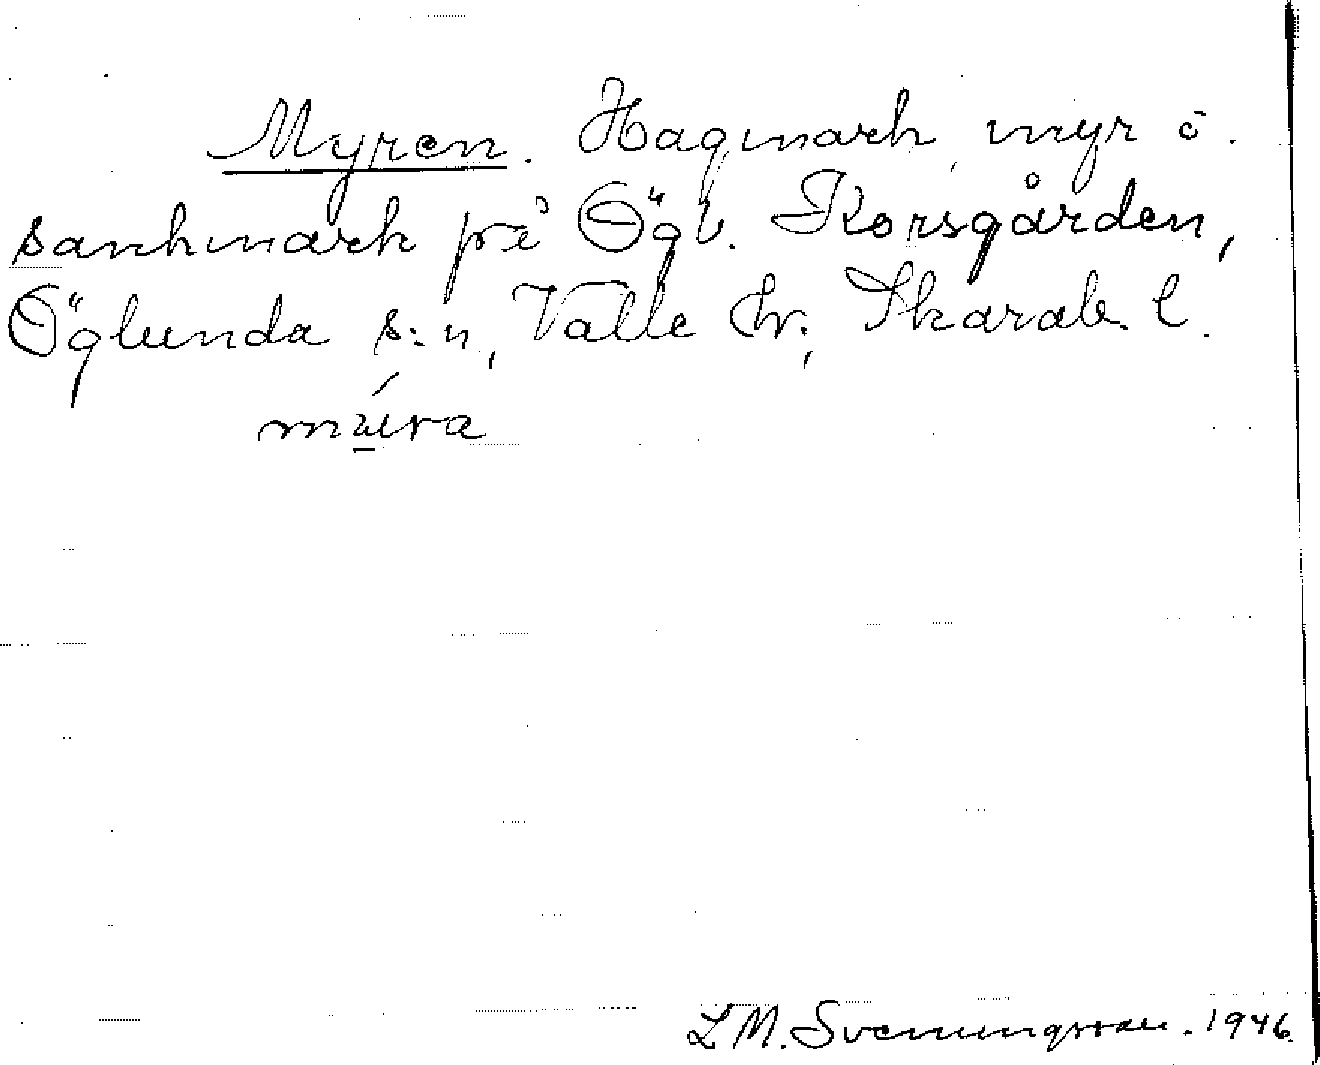 Myren. Hagmark, myr o.
sankmark på Ögl. Korsgården,
Öglunda s:n, Valle hr, Skarab. l.
mura
L M. Svenungsson. 1946